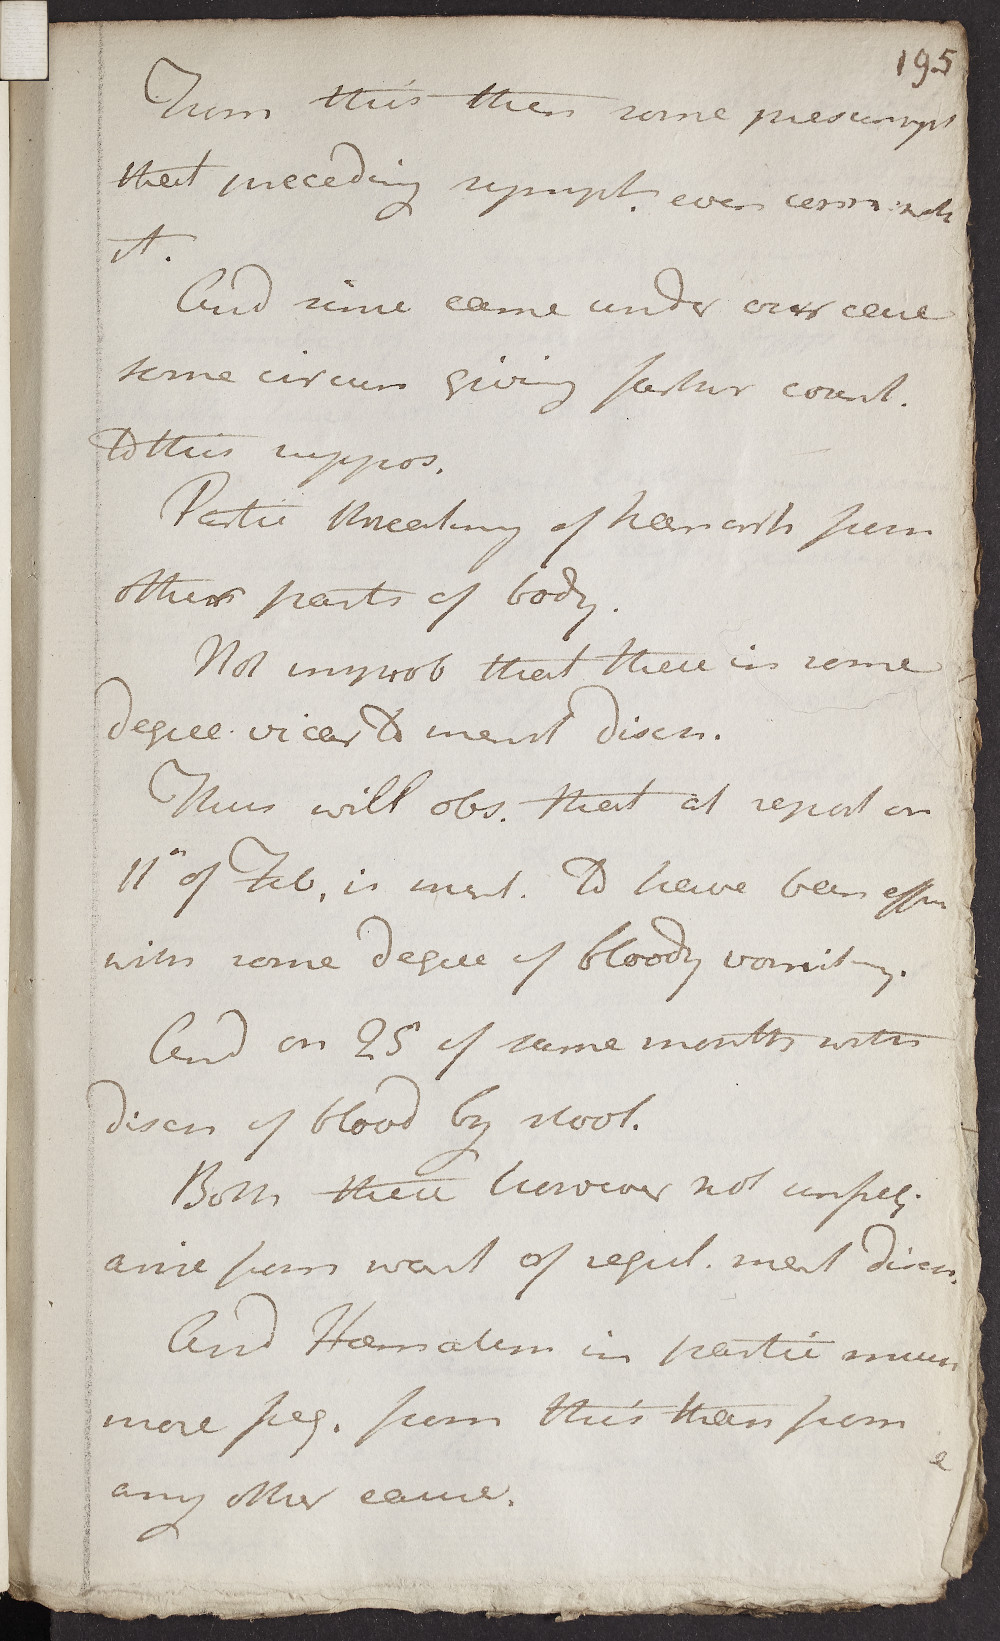 195
From this then some presumpt
that preceding sympt. even conn. with
it.
And since came under our care
some circum giving farther count.
to this suppos.
Partic breaking of hæmorrh from
other parts of body.
Not improb that there is some
degree vicar to menst disch.
Thus will obs. that at report on
11th of Feb, is ment. to have been
with some degree of bloody vomiting.
And on 25 of same month with
disch of blood by stool.
Both these however not unfreq.
arise from want of regul. menst disch.
And Hæmatem in partic much
more freq. from this than from
any other cause.